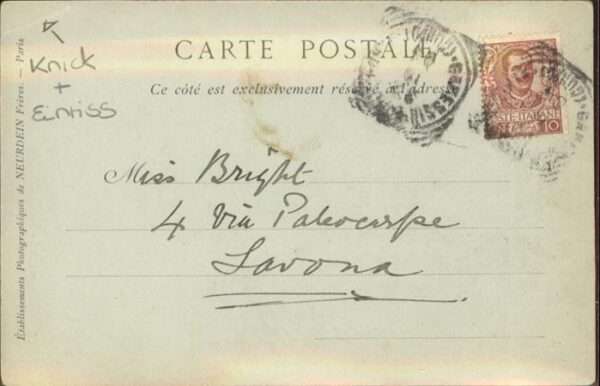 CARTE POSTALE
Ce côté est exclusivement réservé à l'adresse
Knick
+
Einriss
POSTE ITALIANE
10
Miss Bright
4 Via Paleocapa
Savona
Établissements Photographiques de NEURDEIN Frères. — Paris